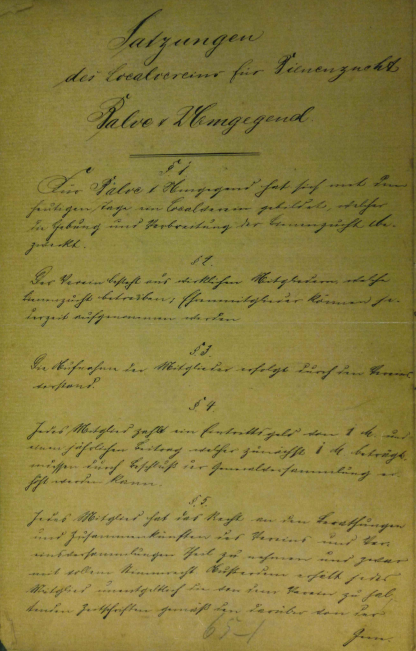 Satzungen
des Localvereins für Bienenzucht
Salve & Umgegend
§ 1
Für Salve & Umgegend hat sich mit dem
heutigen Tage ein Localverein gebildet, welcher
die Hebung und Verbreitung der Bienenzucht be-
zweckt.
§ 2.
Der Verein besteht aus wirklichen Mitgliedern welche
Bienenzucht betreiben, Ehrenmitglieder können je-
derzeit aufgenommen werden
§ 3
Die Aufnahme der Mitglieder erfolgt durch den Vereins
vorstand.
§ 4.
Jedes Mitglied zahlt ein Eintrittsgeld von 1 M. und
einen jährlichen Beitrag welcher zunächst 1 M. beträgt
durch Beschluß der Generalversammlung er-
höht werden kann.
§ 5.
Jedes Mitglied hat das Recht an den Berathungen
und Zusammenkünften des Vereins und Ver-
einsversammlungen Theil zu nehmen und zwar
mit vollem Stimmrecht Außerdem erhält jedes
Mitglied unentgeltlich die von dem Verein zu hal-
tenden Zeitschriften gemäß den darüber von der
65-1
Gene-